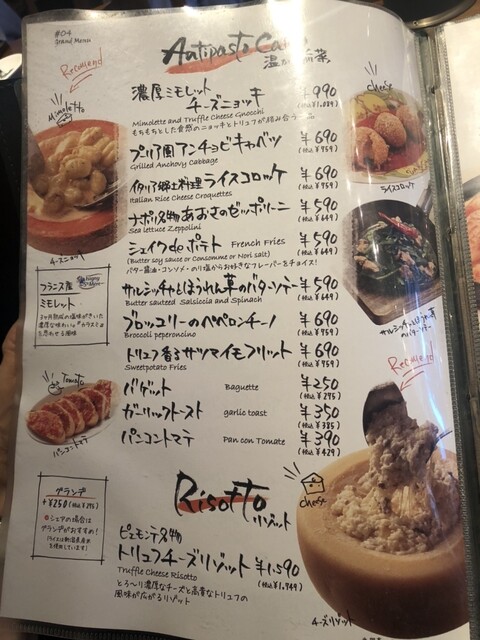 #04
Grand Menu
Antipasto Caldo
温かい前菜
Recommend
Mimolette
チーズニョッキ
濃厚ミモレット
チーズニョッキ
¥990
(税込¥1,089)
Mimolette and Truffle Cheese Gnocchi
もちもちとした食感のニョッキとトリュフが絡み合う一品
プーリア風アンチョビキャベツ
¥690
(税込¥759)
Grilled Anchovy Cabbage
イタリア郷土料理ライスコロッケ
¥690
(税込¥759)
Italian Rice Cheese Croquettes
ナポリ名物あおさのゼッポリーニ
¥590
(税込¥649)
Sea lettuce Zeppolini
シェイクdeポテト French Fries
¥590
(税込¥649)
(Butter soy sauce or Consomme or Nori salt)
バター醤油・コンソメ・のり塩からお好きなフレーバーをチョイス!
サルシッチャとほうれん草のバターソテー
¥590
(税込¥649)
Butter sauteed Salsiccia and Spinach
ブロッコリーのペペロンチーノ
¥690
(税込¥759)
Broccoli peperoncino
トリュフ香るサツマイモフリット
¥690
(税込¥759)
Sweetpotato Fries
バゲット Baguette ¥250
(税込¥275)
ガーリックトースト garlic toast ¥350
(税込¥385)
パンコントマテ Pan con Tomate ¥390
(税込¥429)
フランス産
ミモレット
Tomato
パンコントマテ
cheese
ライスコロッケ
サルシッチャとほうれん草
のバターソテー
Recommend
グランデ
+¥250(税込¥275)
シェアの場合は
グランデがおすすめ!
(ライスは新潟県産米
を使用しています)
Risotto
リゾット
cheese
ピエモンテ名物
トリュフチーズリゾット ¥1,590
(税込¥1,749)
Truffle Cheese Risotto
とろ〜り濃厚なチーズと高貴なトリュフの
風味が広がるリゾット
チーズリゾット